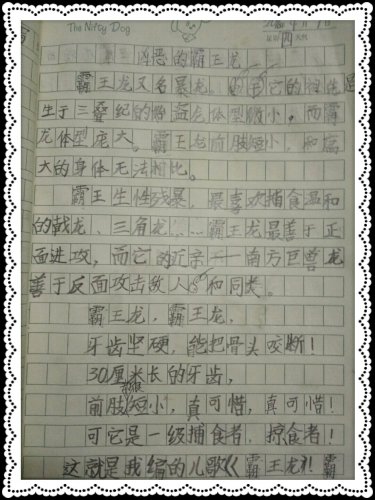 The Nifty Dog
星期 四 天气
凶恶的霸王龙
霸王龙又名暴龙,它的祖先是
生于三叠纪的 盗龙体型微小。而霸
龙体型庞大。霸王龙前肢短小,和高
大的身体无法相比。
霸王生性残暴,最喜欢捕食温和
的戟龙、三角龙……霸王龙最善于正
面进攻,而它的 南方巨兽龙
善于反面攻击敌人 和同类。
霸王龙,霸王龙,
牙齿坚硬,能把骨头咬断!
30厘米长的牙齿,
前肢短小,真可惜,真可惜!
可它是一级捕食者,掠食者!
这就是我编的儿歌《霸王龙》!霸